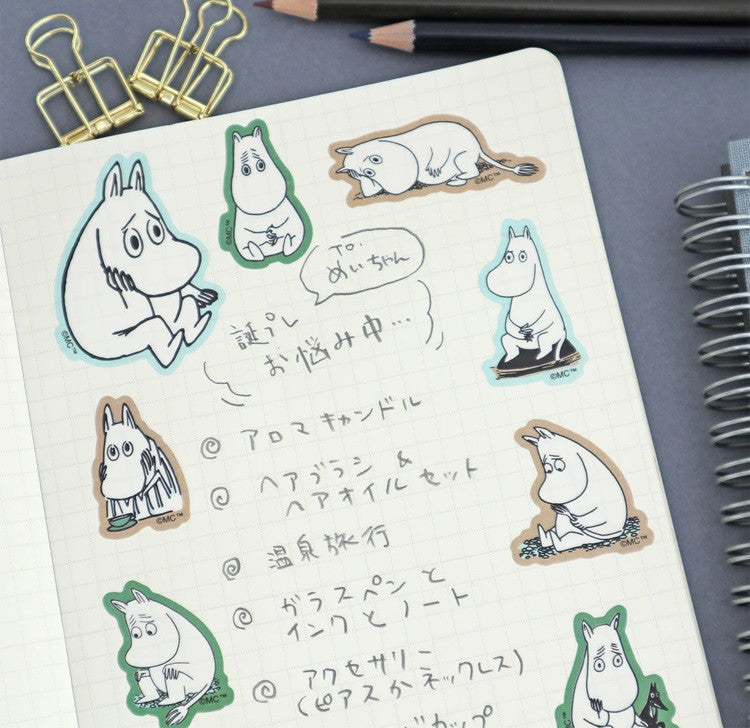 めいちゃん
誕プレ
お悩み中…
アロマキャンドル
ヘアブラシ &
ヘアオイルセット
温泉旅行
ガラスペンと
インクとノート
アクセサリー
(ピアスかネックレス)
カップ
©MC™
©MC™
©MC™
©MC™
©MC™
©MC™
©MC™
©MC™